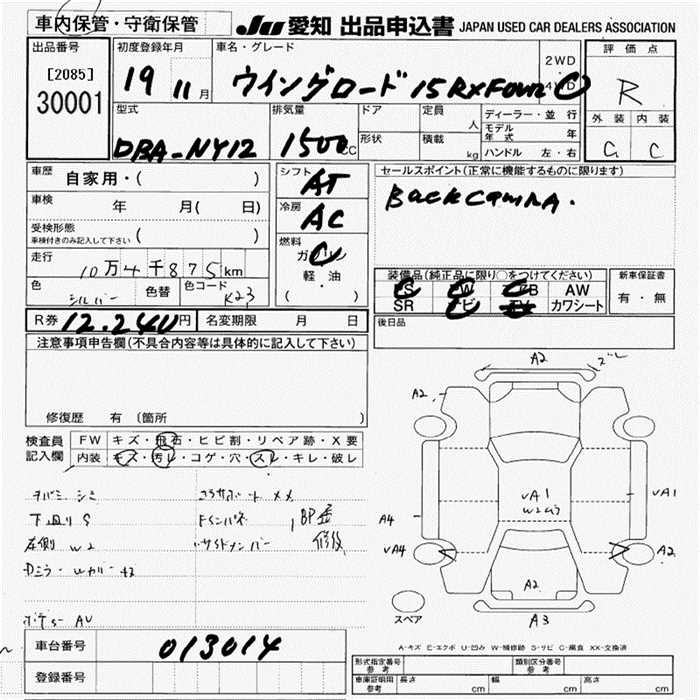 車内保管・守衛保管
JU 愛知 出品申込書 JAPAN USED CAR DEALERS ASSOCIATION
出品番号
[2085]
30001
初度登録年月
19 11月
車名・グレード
ウイングロード 15RXFOUR
2WD
4WD
評価点
R
外装 内装
C C
型式
DBA-NY12
排気量
1500cc
ドア
形状
定員
人
積載
kg
ディーラー・並行
モデル年式 年
ハンドル 左・右
車歴 自家用・( )
車検 年 月( 日)
受検形態 ( )
車検付きのみ記入して下さい
走行 10万4千875km
色 シルバー 色替 色コード K23
シフト AT
冷房 AC
燃料 ガソリン
軽・油
( )
セールスポイント(正常に機能するものに限ります)
BACKCAMRA.
装備品(純正品に限り○をつけてください)
AW
SR ナビ TV カワシート
新車保証書
有・無
後日品
R券 12.240円 名変期限 月 日
注意事項申告欄(不具合内容等は具体的に記入して下さい)
修復歴 有 (箇所 )
検査員記入欄
FW キズ・飛石・ヒビ割・リペア跡・X要
内装 キズ・汚レ・コゲ・穴・スレ・キレ・破レ
下廻りS
左側 W2
BP金修後
A2
A2
VA1
W2ムラ
VA1
A4
VA4
A2
A2
A3
スペア
A-キズ E-エクボ U-凹み W-補修跡 S-サビ C-腐食 XX-交換済
車台番号 013014
登録番号
形式指定番号 参考
類別区分番号 参考
車庫証明用 参考
長さ cm
幅 cm
高さ cm